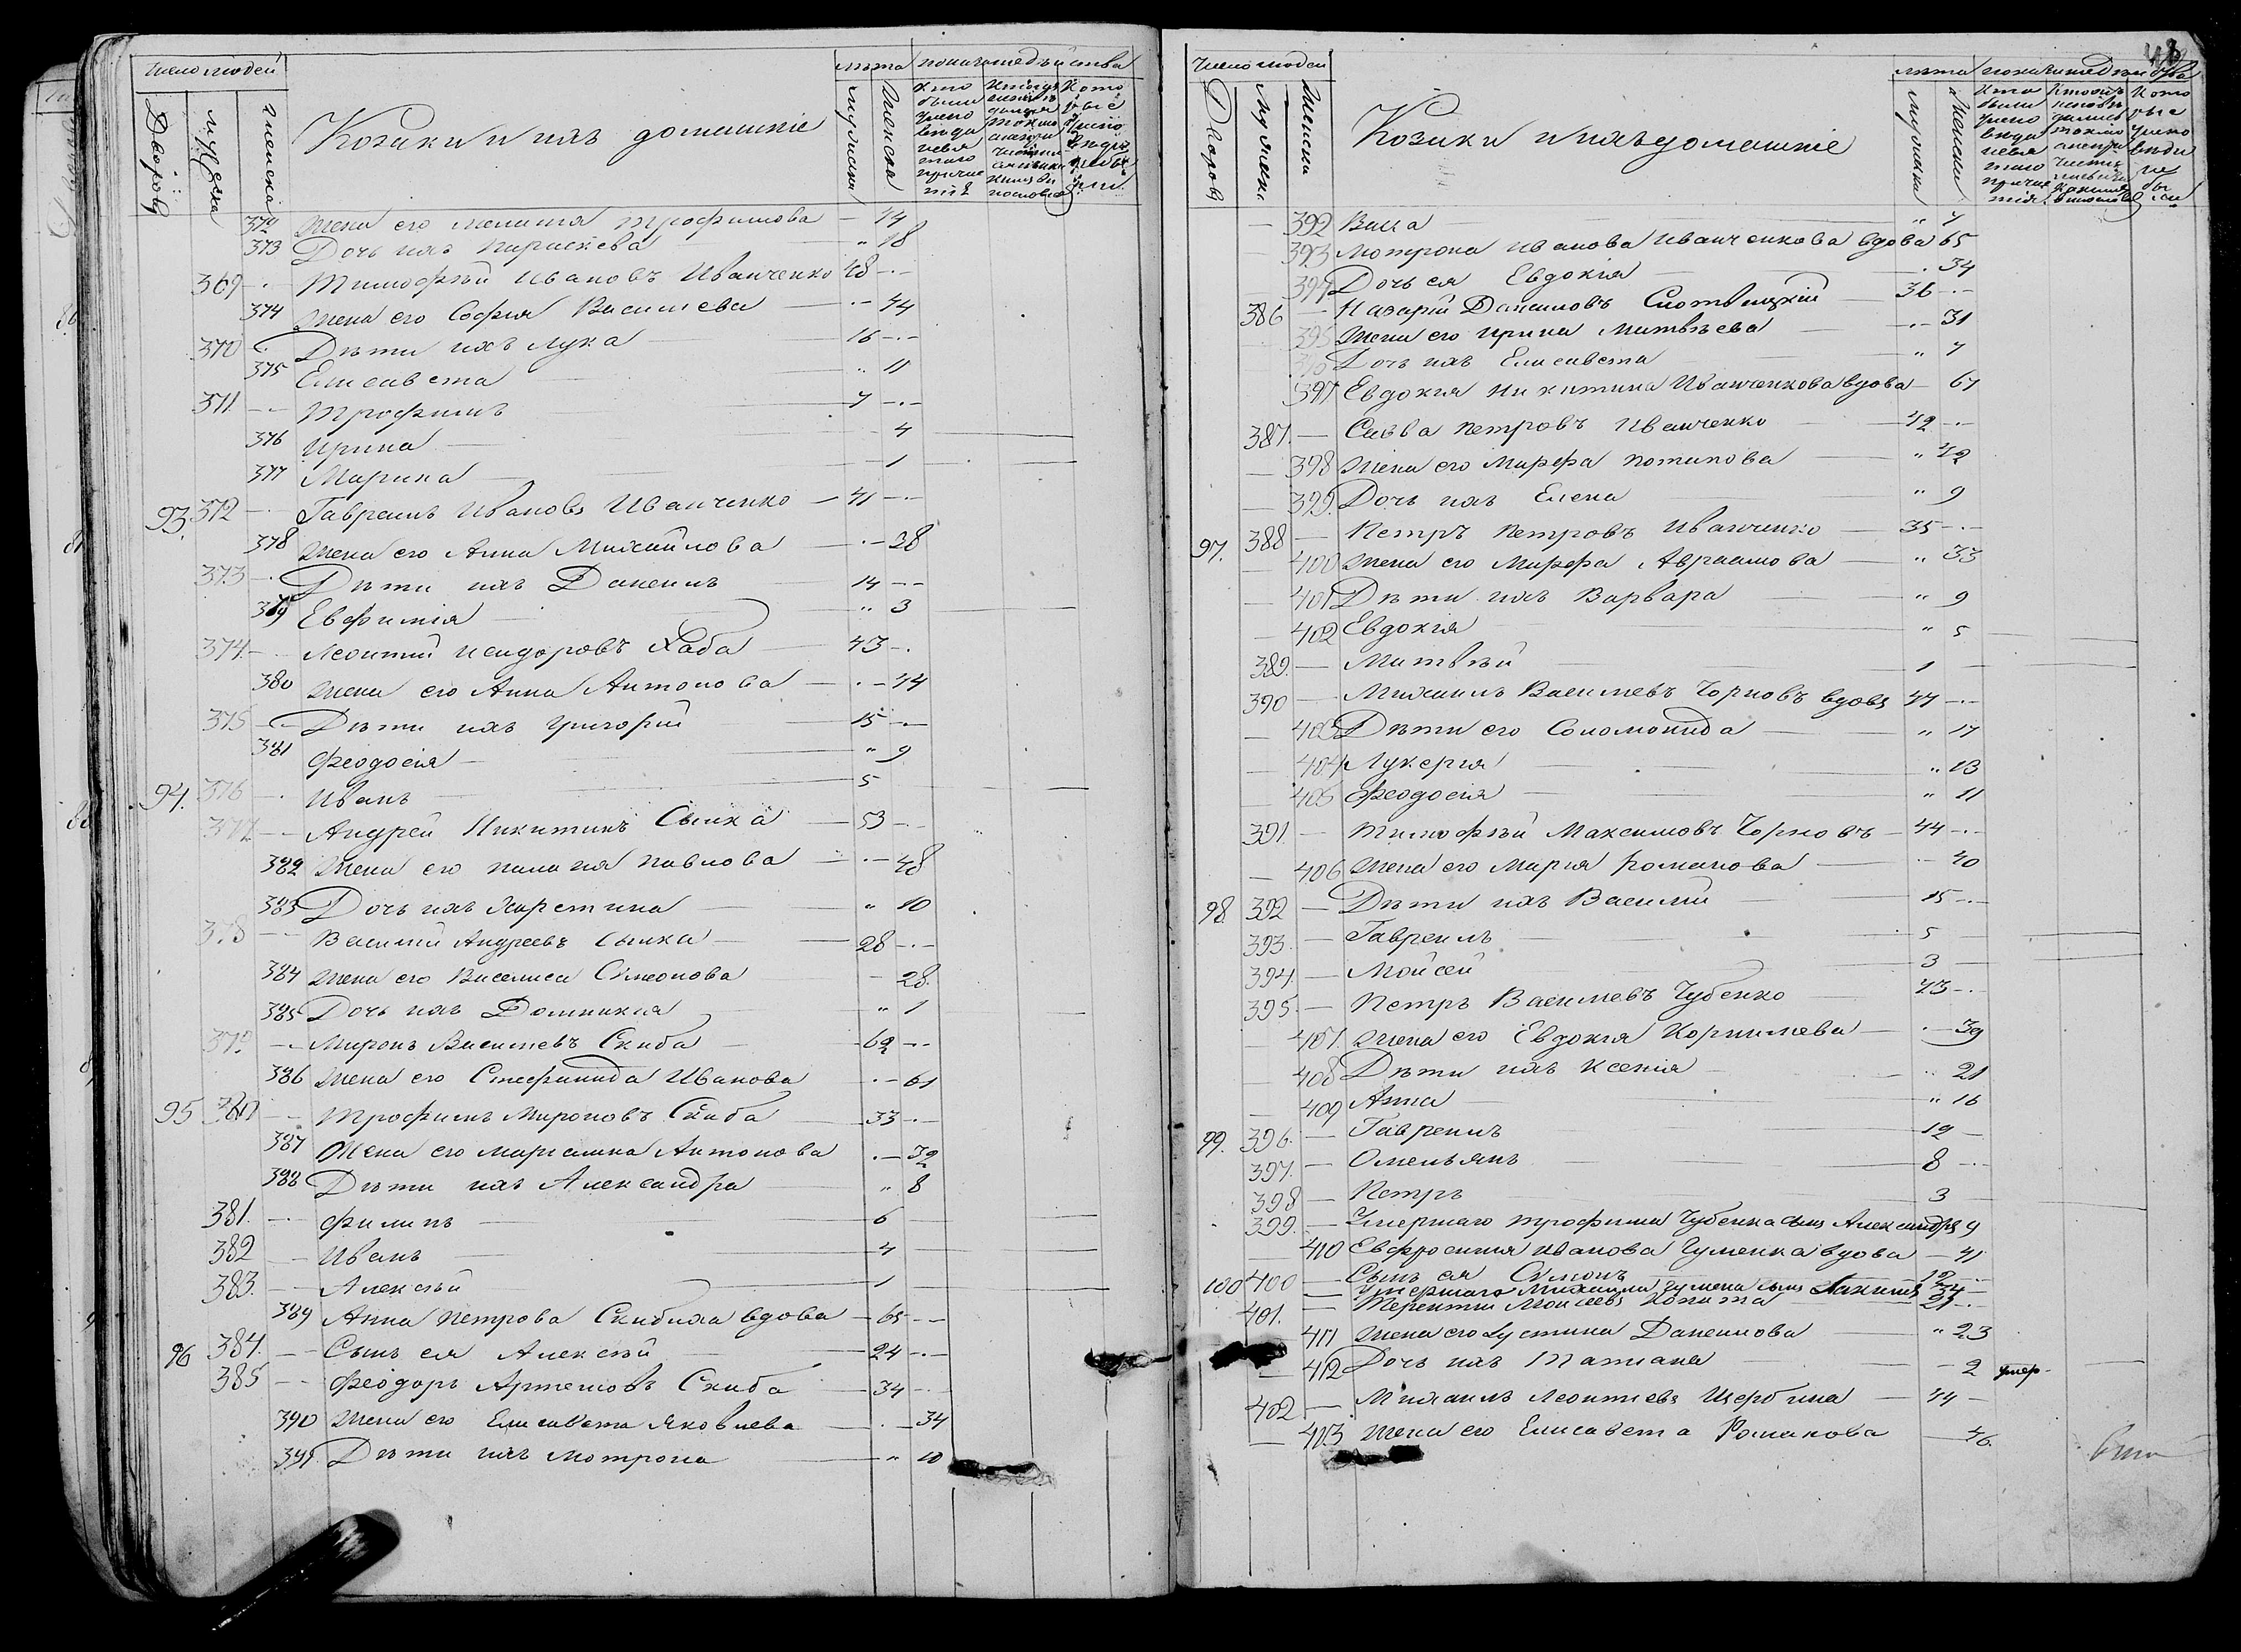 число людей
Дворовъ
мужска
женска
Козаки и ихъ домашніе
лѣта
мужски
женска
показательства
Кто были у исповеди и святаго причастія
372 Жена его Меланія Трофимова — 44
373 Дочь ихъ Параскева " 18
369 — Тимофѣй Ивановъ Иванченко 48 —
374 Жена его Софія Василіева — 44
370 — Дѣти ихъ Лука 16 —
375 Елисавета " 11
371 — Трофимъ 7 —
376 Ирина — 4
377 Марина — 1
93. 372 — Гавріилъ Ивановъ Иванченко — 41 —
378 Жена его Анна Михайлова — 38
373 — Дѣти ихъ Даніилъ 14 —
379 Евфимія " 3
374 — Леонтій Исидоровъ Хаба 43 —
380 Жена его Анна Антонова — 44
375 — Дѣти ихъ Григорій 15 —
381 Феодосія " 9
94. 376 — Иванъ 5
377 — Андрей Никитинъ Сылка 53 —
382 Жена его Палагія Павлова — 48
383 Дочь ихъ Харетина " 10
378 — Василій Андреевъ Сылка 28 —
384 Жена его Василиса Симеонова — 28
385 Дочь ихъ Домникія " 1
379 — Миронъ Василіевъ Скиба 62 —
386 Жена его Стефанида Иванова — 61
95 380 — Трофимъ Мироновъ Скиба 33 —
387 Жена его Маріамна Антонова — 32
388 Дѣти ихъ Александра " 8
381. — Филипъ 6
382 — Иванъ 4
383. — Алексѣй 1
389 Анна Петрова Скибиха вдова — 65 —
96 384. — Сынъ ея Алексѣй 24 —
385 — Феодоръ Артемовъ Скиба 34 —
390 Жена его Елисавета Яковлева — 34
391 Дѣти ихъ Мотрона " 10
48
число людей
Дворовъ
Мужеска
Женски
Козаки и ихъ домашніе
лѣта
мужски
женски
показательства
392 Васса " 7
393 Мотрона Иванова Иванченкова вдова 65
394 Дочь ея Евдокія — 34
386 — Назарій Даниловъ 36 —
395 Жена его Ирина Матвѣева — 31
396 Дочь ихъ Елисавета " 7
397 Евдокія Никитина Иванченкова вдова — 67
387. — Савва Петровъ Иванченко 42 —
398 Жена его Марфа Потапова " 42
399. Дочь ихъ Елена " 9
97. 388 — Петръ Петровъ Иванченко 35 —
400 Жена его Марфа Авраамова " 33
401 Дѣти ихъ Варвара " 9
402 Евдокія " 5
389. — Матвѣй 1
390 — Михаилъ Василіевъ Чорновъ вдовъ 47 —
403 Дѣти его Соломонида " 17
404 Лукерія " 13
405 Феодосія " 11
391 — Тимофѣй Максимовъ Чорновъ 44 —
406 Жена его Марія Романова — 40
98. 392 — Дѣти ихъ Василій 15 —
393. — Гавріилъ 5
394. — Мойсей 3
395. — Петръ Василіевъ Чубенко 43 —
407. Жена его Евдокія Корнилиева — 39
408 Дѣти ихъ Ксенія 21
409 Анна " 16
99. 396. — Гавріилъ 12 —
397. — Омельянъ 8 —
398 — Петръ 3
399. — Умершаго Трофима Чубенка сынъ Александръ 9
410 Евфросинія Иванова Гуменка вдова — 41
100 400 — Сынъ ея Симонъ 12 —
— Умершаго Михаила Гумена сынъ 34 —
401. — Терентій Моисеевъ Копита 25 —
411 Жена его Іустина Даніилова " 23
412 Дочь ихъ Татіана — 2 умер.
402 — Михаилъ Леонтіевъ Щербина 44 —
403 Жена его Елисавета Романова — 46.